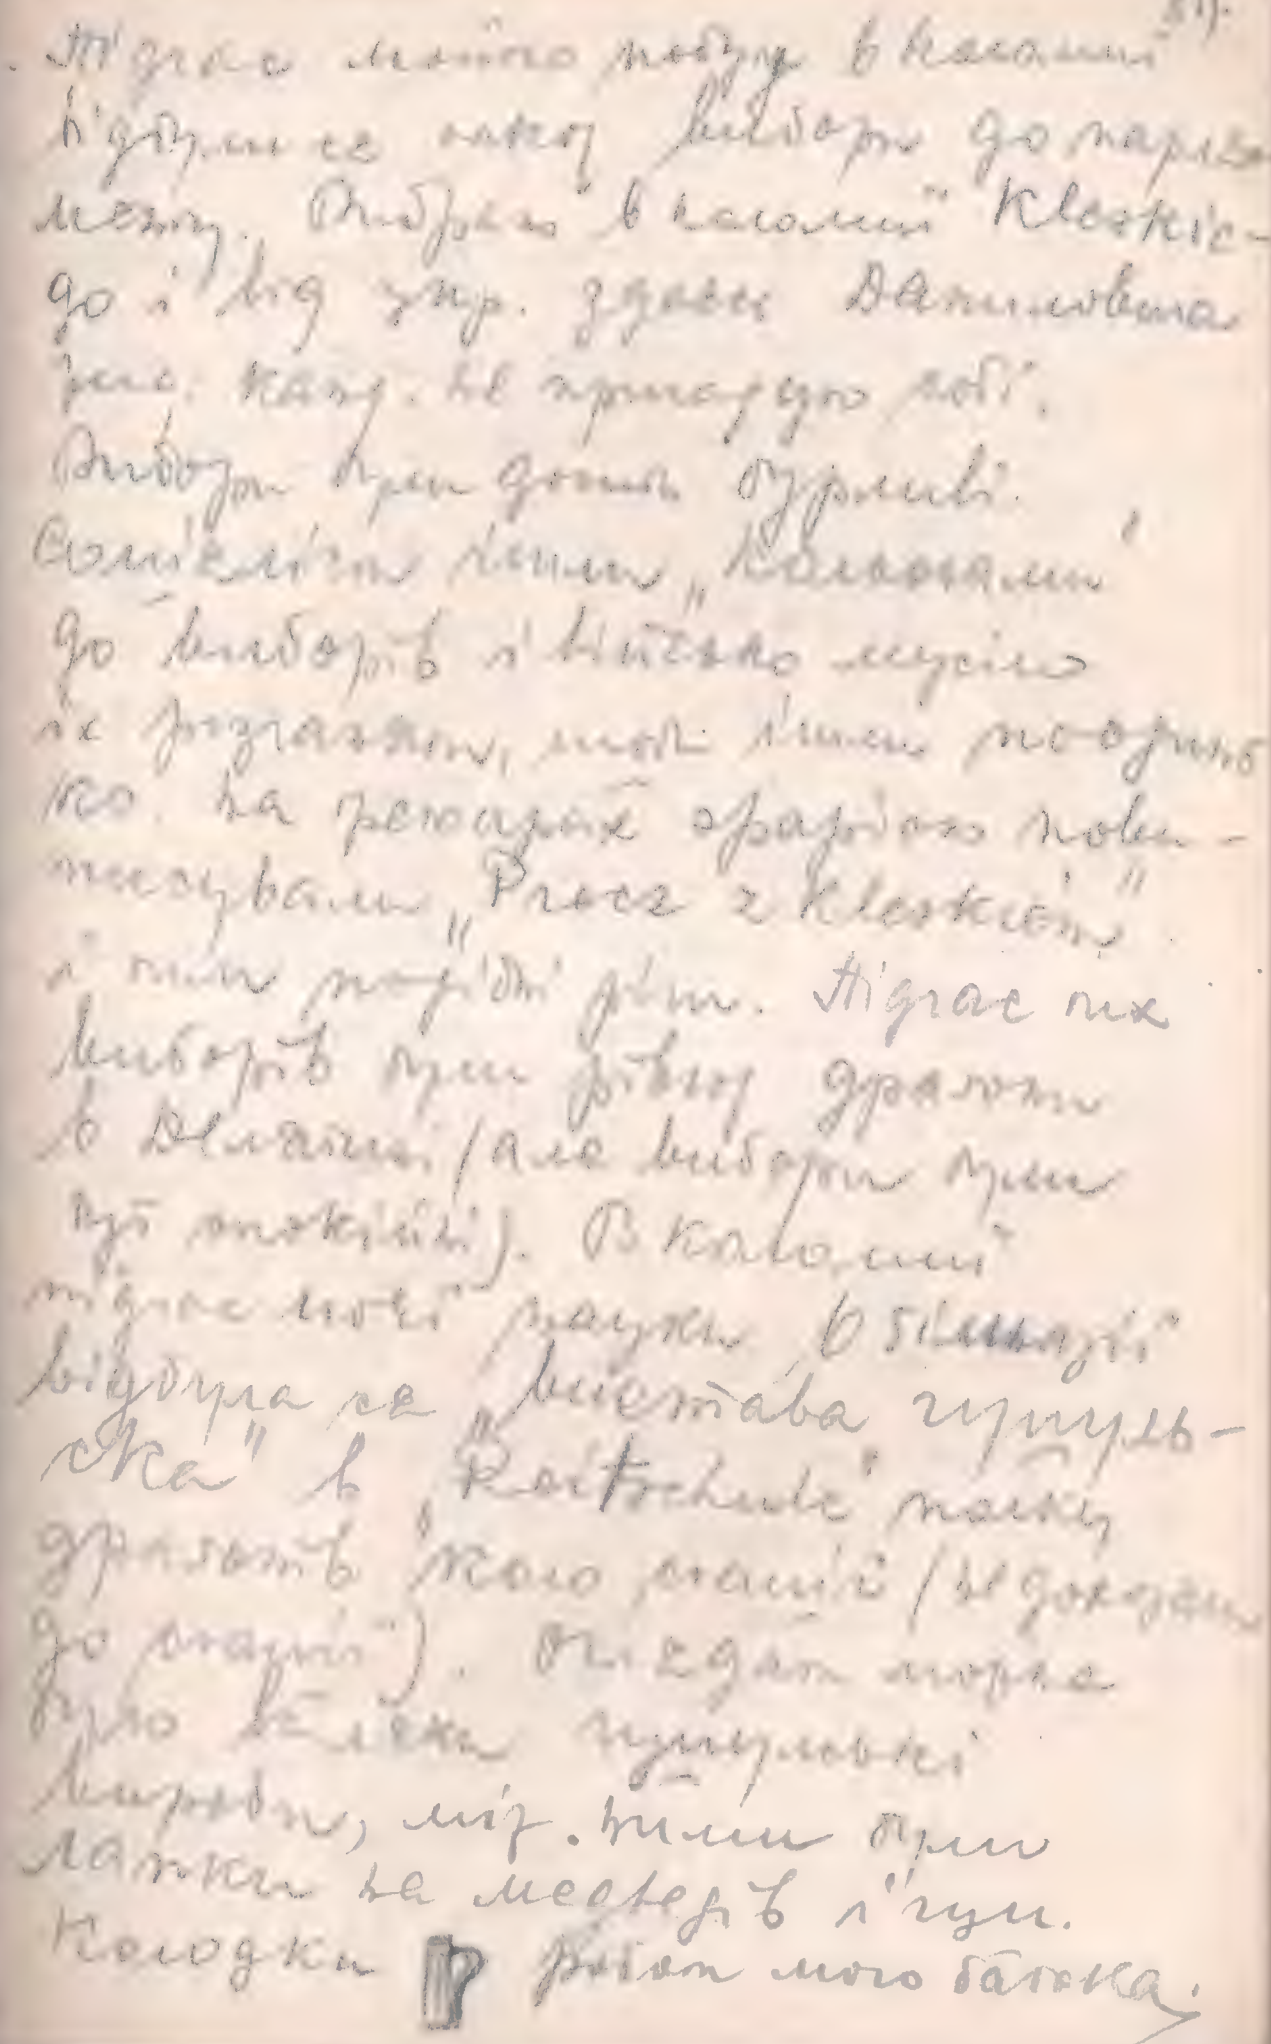 Підчас мойого побуту в Коломиї
відбулися також вибори до парля-
менту. Вибрали в Коломиї Kleskie-
го і від укр. здаєся Даниловича
інш. канд. не пригадую собі.
Вибори були досить бурливі.
Соціялісти ішли „кольонами"
до виборів і військо мусіло
їх розганяти, щоби ішли поодинь
ко. На ретирадах фарбою пови-
писували „Precz z Kleskiem"
і тим подібні річи. Підчас тих
виборів були рівнож драгони
в Делятині (але вибори були
тут спокійні). В Коломиї
підчас моєї науки в гімназії
відбула ся „виставa гуцуль-
ска" в „Reitschule" польку
драгонів коло стації (не доходячи
до стації). Оглядати можна
було всілякі гуцульські
вироби, між ними були
лапки на медведів і гуц.
колодки роботи мого батька.